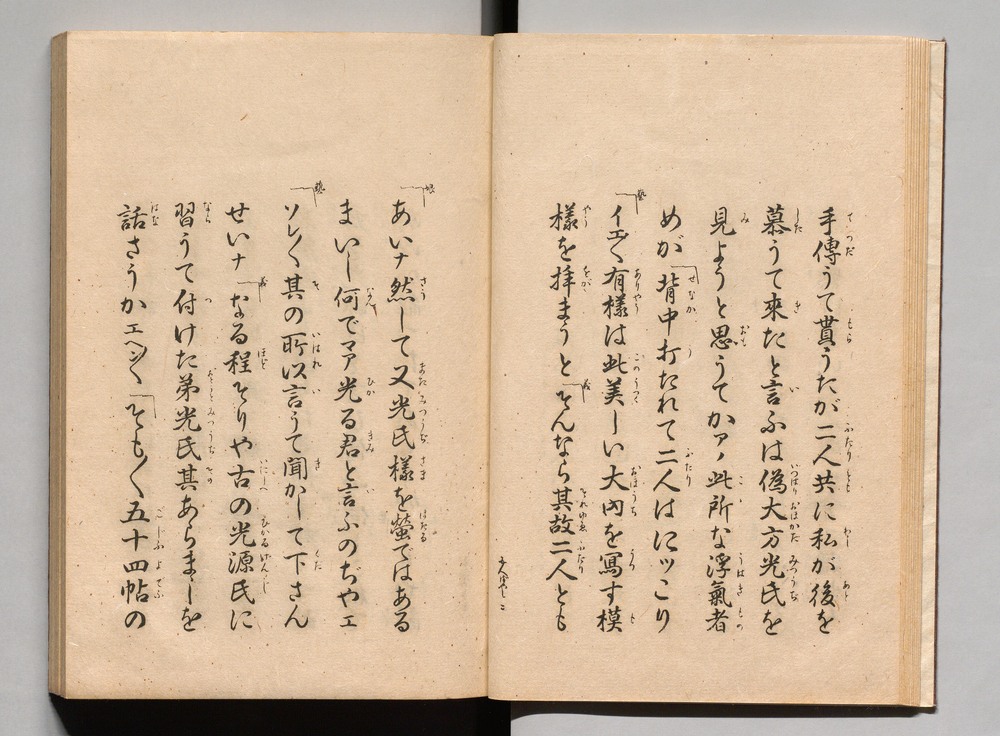 手傳うて貰うたが二人共に私が後を
慕うて來たと言ふは偽大方光氏を
見ようと思うてかアヽ此所な浮氣者
めが「背中打たれて二人はにツこり
「イエ〱有樣は此美しい大内を寫す模
樣を拝まうと「そんなら其故二人とも
あいナ然して又光氏樣を螢ではある
まいし何でマア光る君と言ふのぢやエ
「ソレ〱其の所以言うて聞かして下さん
せいナ「なる程そりや古の光源氏に
習うて付けた弟光氏其あらましを
話さうかエヘン〱「そも〱五十四帖の